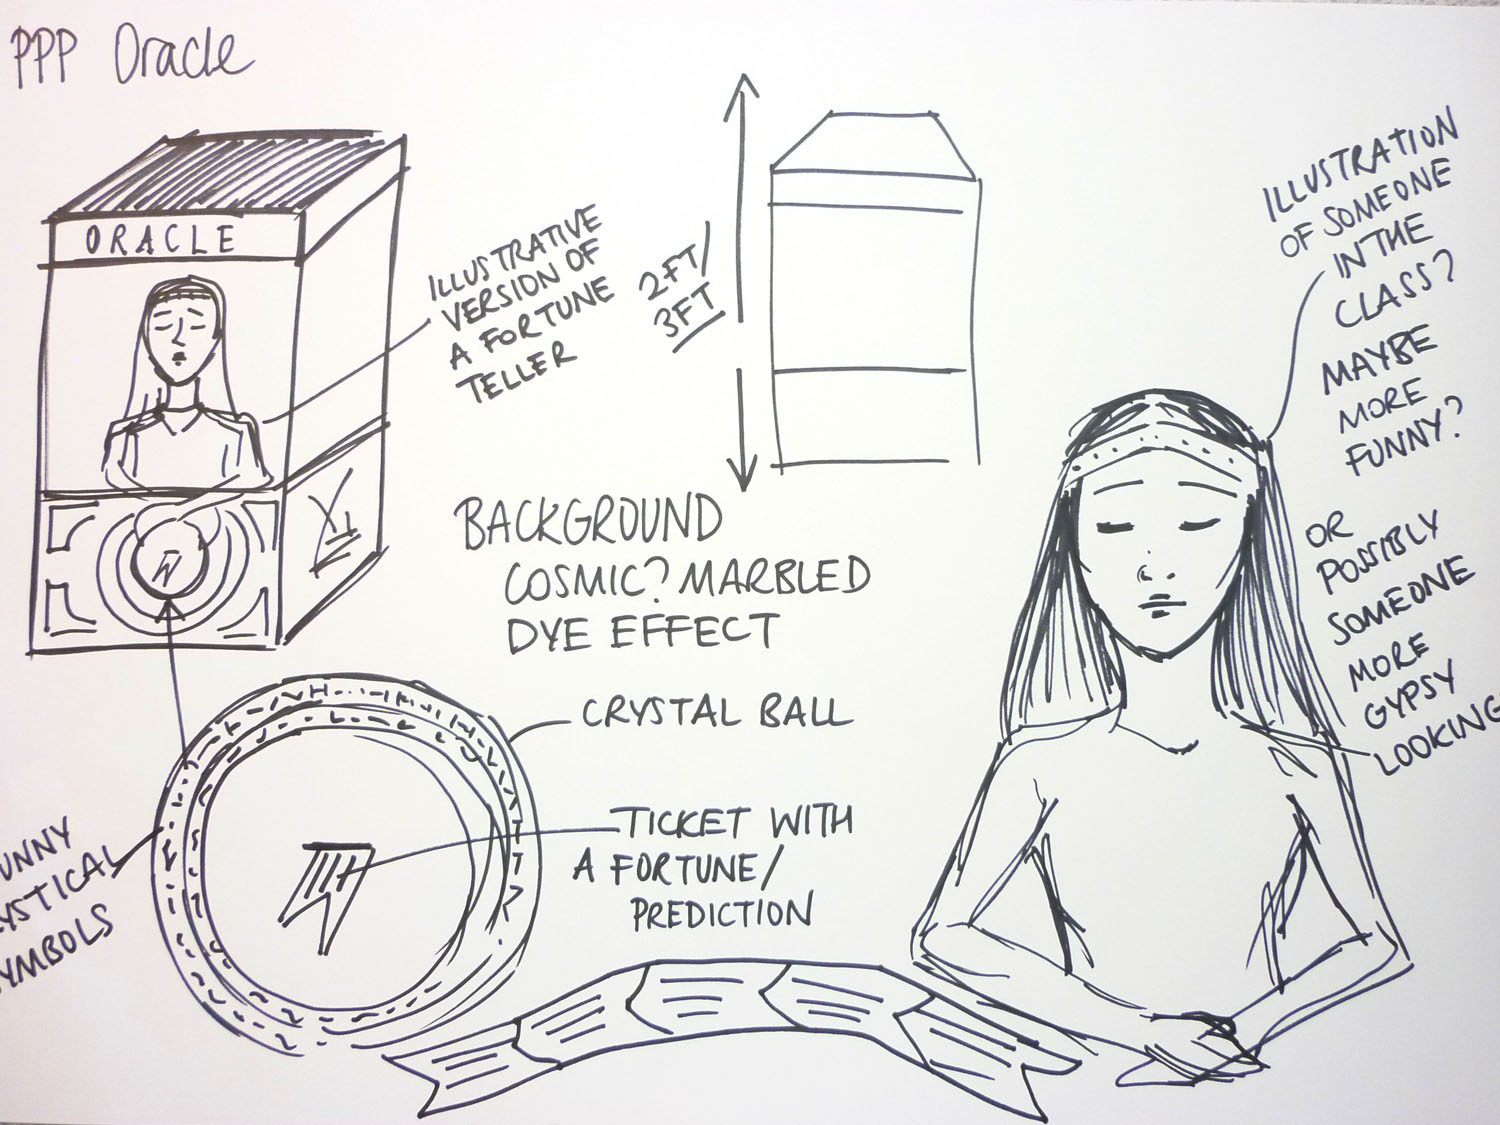 PPP Oracle
ORACLE
ILLUSTRATIVE
VERSION OF
A FORTUNE
TELLER
2FT/
3FT
ILLUSTRATION
OF SOMEONE
IN THE
CLASS?
MAYBE
MORE
FUNNY?
OR
POSSIBLY
SOMEONE
MORE
GYPSY
LOOKING
BACKGROUND
COSMIC? MARBLED
DYE EFFECT
CRYSTAL BALL
TICKET WITH
A FORTUNE/
PREDICTION
UNNY
YSTICAL
YMBOLS